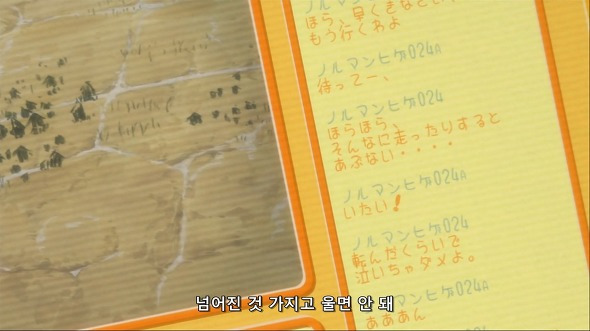 ほら、早くきなさい
もう行くわよ
ノルマンヒゲ024A
待ってー、
ノルマンヒゲ024
ほらほら、
そんなに走ったりすると
あぶない・・・・
ノルマンヒゲ024A
いたい!
ノルマンヒゲ024
転んだくらいで
泣いちゃダメよ。
ノルマンヒゲ024A
あああん
넘어진 것 가지고 울면 안 돼